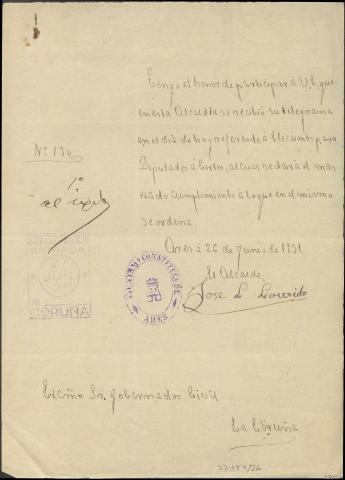 Tengo el honor de participar a V.E. que
en esta Alcaldia se recibió su telegrama
en el dia de hoy referente á Elecciones para
Diputados á Cortes, al cual se dará el mas
exacto cumplimiento á lo que en el mismo
se ordena.
Ares á 26 de Junio de 1931.
El Alcalde,
Jose L Lourido
Nº 130
AYUNTAMIENTO CONSTITUCIONAL DE
ARES
JUN
CORUÑA
Excmo Sr. Gobernador Civil
La Coruña